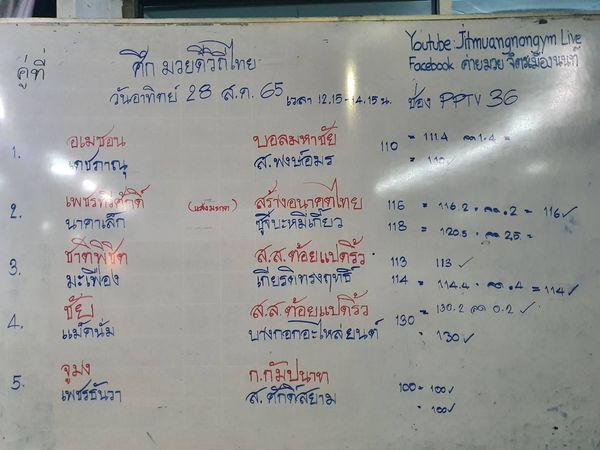 Youtube Jitmuangnongym Live
คู่ที่ ศึก มวยดีวิถีไทย Facebook ค่ายมวย จิตรเมืองนนท์
วันอาทิตย์ 28 ส.ค. 65 เวลา 12.15-14.15 น. ช่อง PPTV 36
1. อเมซอน บอลมหาชัย 110 = 111.4 ลด 1.4 =
เดชภาณุ ส.พงษ์อมร = 110 ✓
2. เพชรพีรศักดิ์ สร้างอนาคตไทย 116 = 116.2 ลด .2 = 116 ✓
นาคาเล็ก ชูจีบะหมี่เกี๊ยว 118 = 120.5 ลด 2.5 =
3. ชาติพิชิต ส.ส.ต้อยแปดริ้ว 113 113 ✓
มะเฟือง เกียรติทรงฤทธิ์ 114 = 114.4 ลด .4 = 114 ✓
4. ชัย ส.ส.ต้อยแปดริ้ว 130 = 130.2 ลด 0.2 ✓
แม็คนั่ม บางกอกอะไหล่ยนต์ 130 ✓
5. จูมง ก.กัมปนาท 100 = 100 ✓
เพชรธันวา ส.ศักดิ์สยาม = 100 ✓